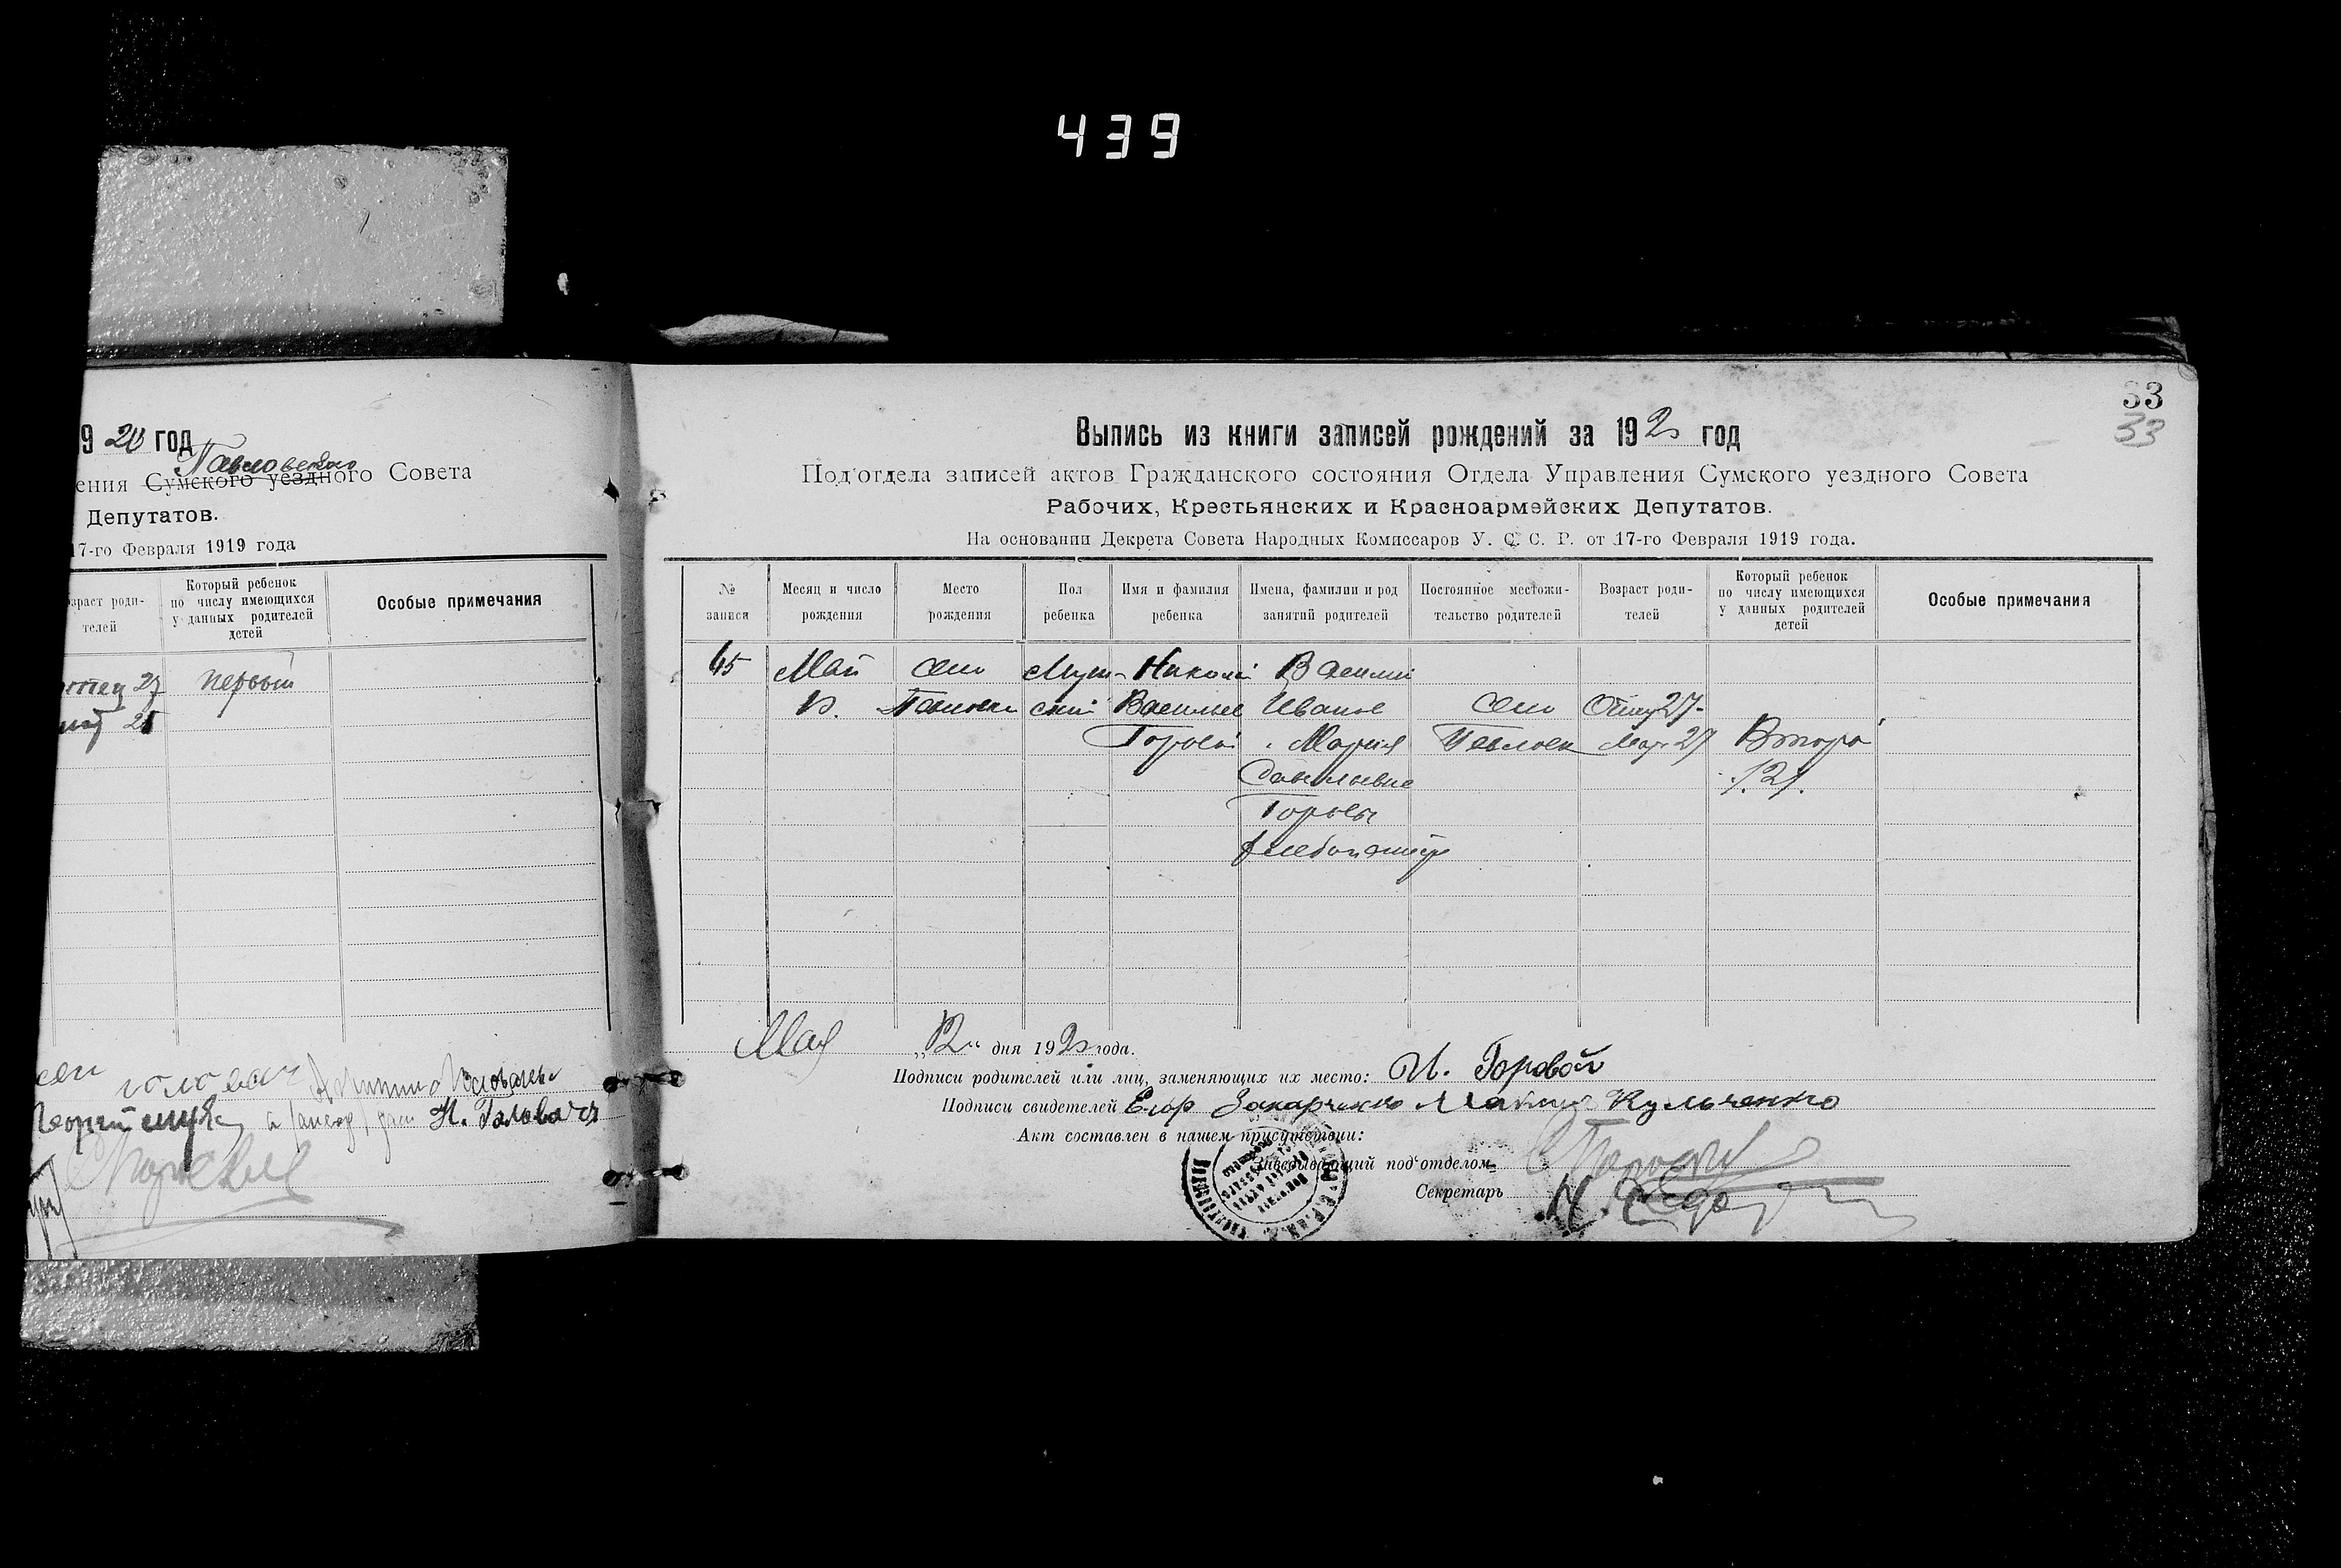 439
9 20 год
Павловского
ения Сумского уездного Совета
Депутатов.
17-го Февраля 1919 года
зраст роди-
телей
Который ребенок
по числу имеющихся
у данных родителей
детей
Особые примечания
отец 27
первый
Н. Головач
33
33
Выпись из книги записей рождений за 192 год
Под'отдела записей актов Гражданского состояния Отдела Управления Сумского уездного Совета
Рабочих, Крестьянских и Красноармейских Депутатов.
На основании Декрета Совета Народных Комиссаров У. С. С. Р. от 17-го Февраля 1919 года.
№
записи
Месяц и число
рождения
Место
рождения
Пол
ребенка
Имя и фамилия
ребенка
Имена, фамилии и род
занятий родителей
Постоянное местожи-
тельство родителей
Возраст роди-
телей
Который ребенок
по числу имеющихся
у данных родителей
детей
Особые примечания
45
Май
село
Павловки
Муж-
ской
Николай
Василье
Горовой
Василий
Иванов
Мария
Даниловне
Горовы
хлебопашцы
село
Павловк
Отцу 27
Мат 27
Второй
/2/.
Мая „12" дня 1920 года.
Подписи родителей или лиц, заменяющих их место: И. Горовой
Подписи свидетелей Егор Захарченко Кульченко
Акт составлен в нашем присутствии:
Заведывающий под'отделом
Секретарь